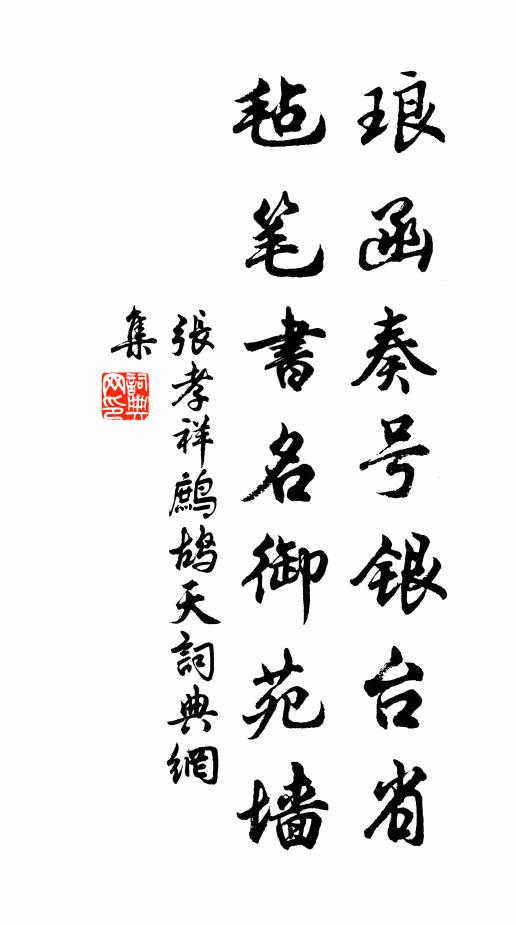 琅函奏号银台省
毡笔書名御苑墙
張孝祥鷓鴣天詞典網
集
詞典
网印